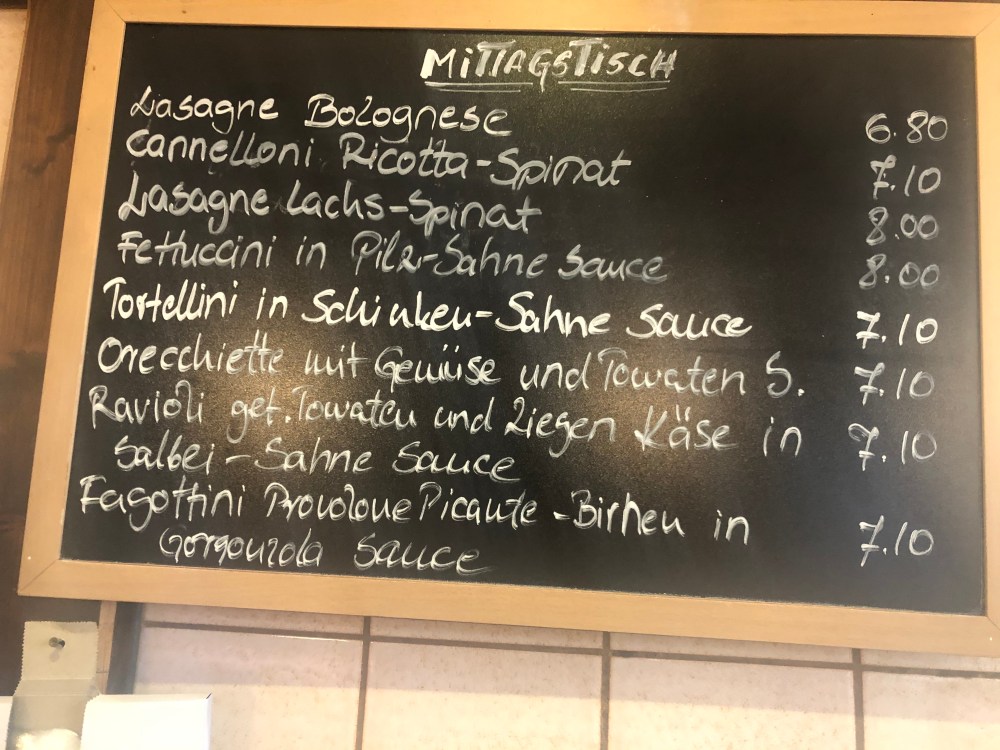 MITTAGSTISCH
Lasagne Bolognese 6.80
Cannelloni Ricotta-Spinat 7.10
Lasagne Lachs-Spinat 8.00
Fettuccini in Pilz-Sahne Sauce 8.00
Tortellini in Schinken-Sahne Sauce 7.10
Orecchiette mit Gemüse und Tomaten S. 7.10
Ravioli get. Tomaten und Ziegen Käse in 7.10
Salbei-Sahne Sauce
Fagottini Provolone Picante-Birnen in 7.10
Gorgonzola Sauce